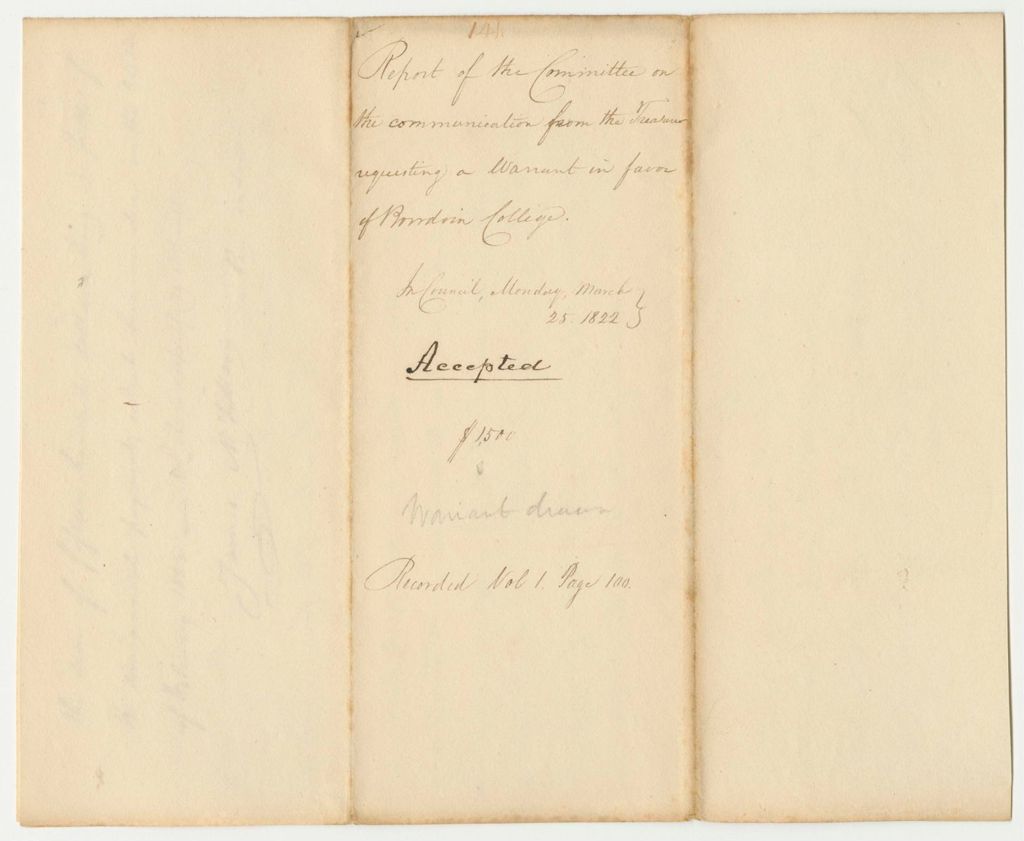 141.
Report of the Committee on
the communication from the Treasurer
requesting a Warrant in favor
of Bowdoin College.
In Council, Monday, March
25. 1822 }
Accepted
$1,500
Warrant drawn
Recorded Vol 1. Page 100.